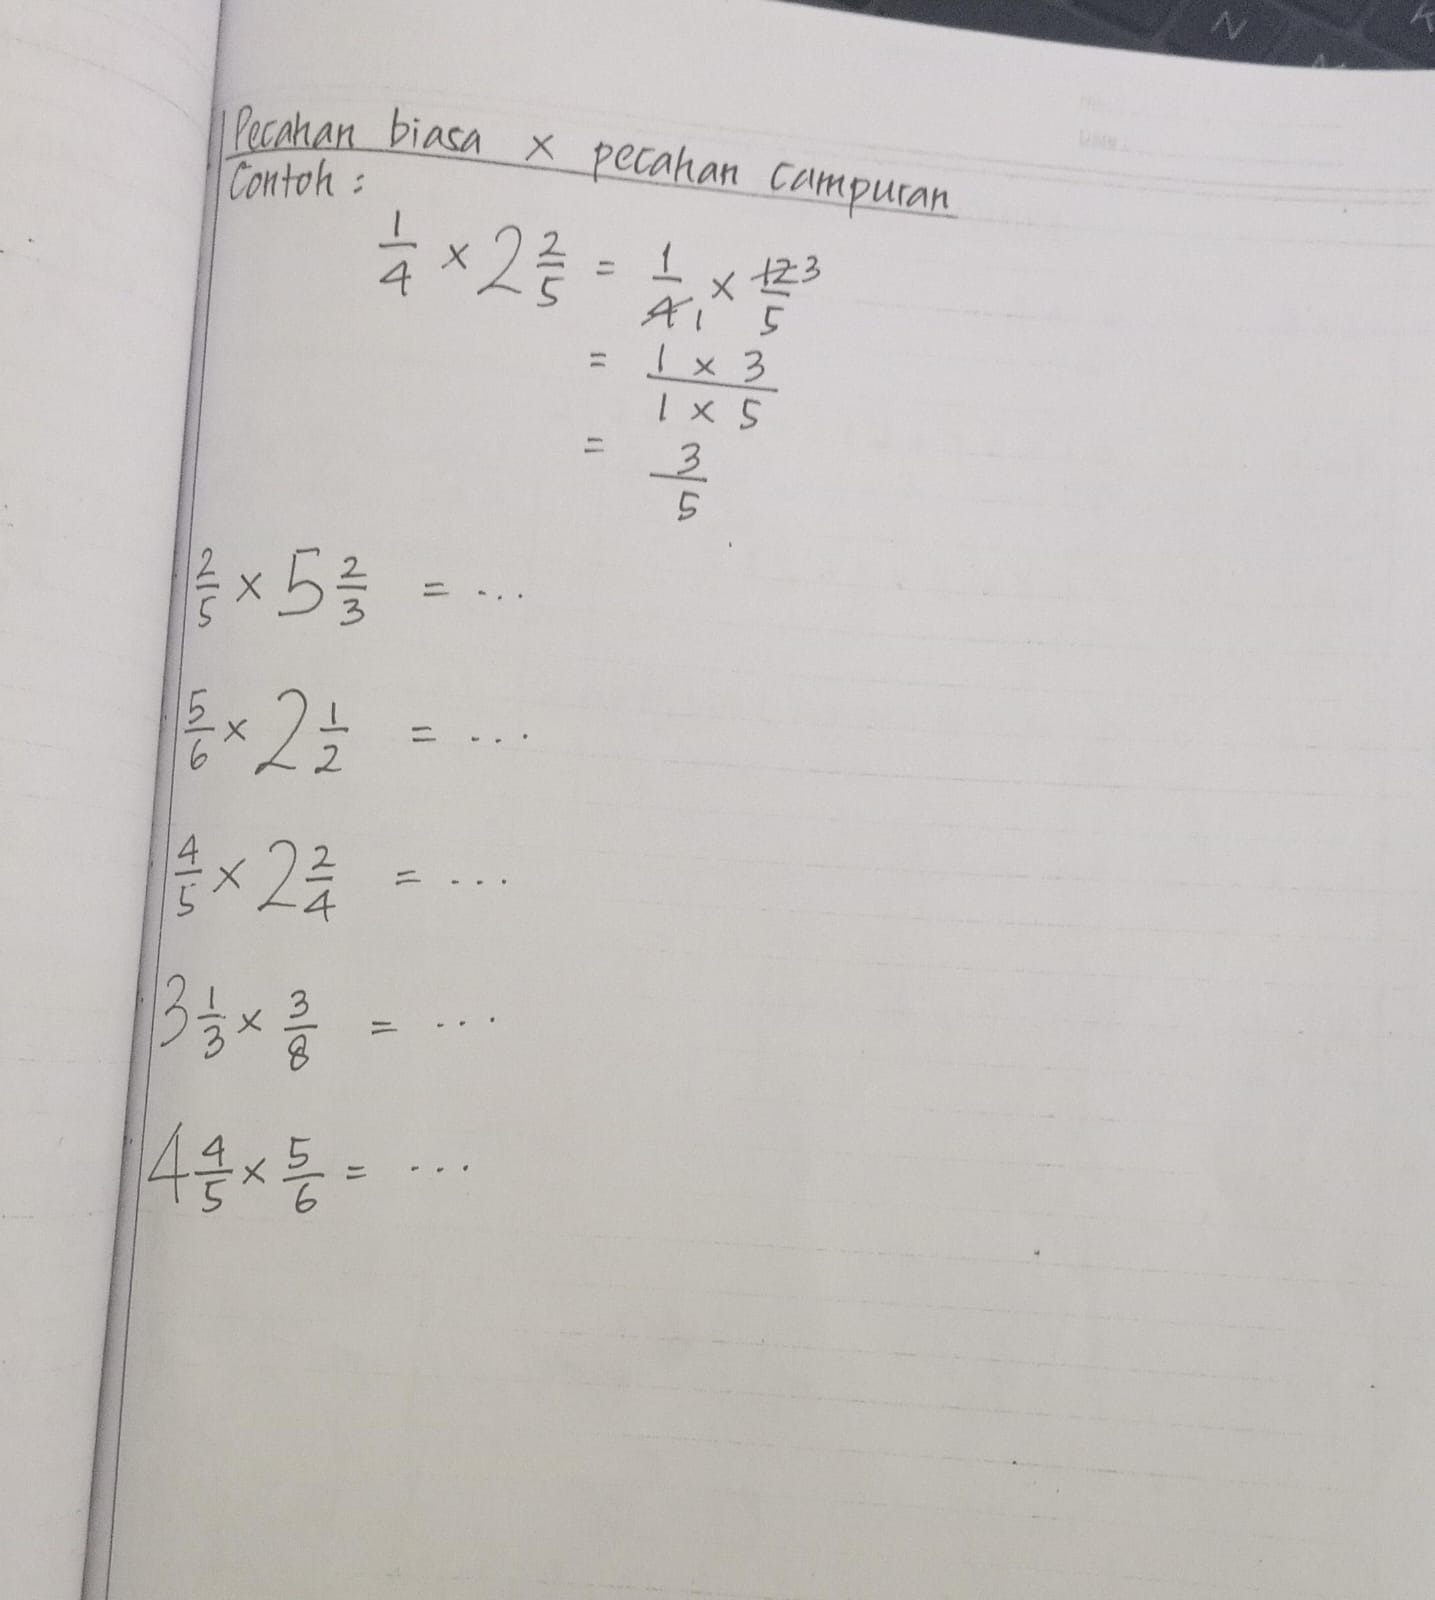 Pecahan biasa x pecahan campuran
Contoh :
1/4 x 2 2/5 = 1/4 1 x 12 3/5
= 1 x 3 / 1 x 5
= 3/5
2/5 x 5 2/3 = ...
5/6 x 2 1/2 = ...
4/5 x 2 2/4 = ...
3 1/3 x 3/8 = ...
4 4/5 x 5/6 = ...
N
K